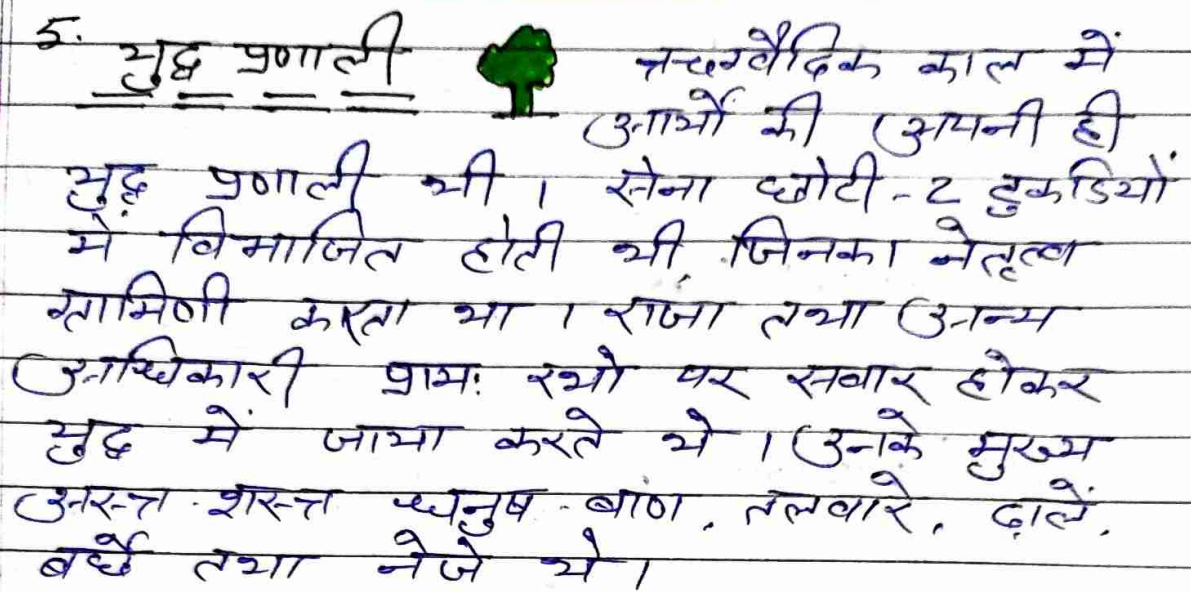 5. युद्ध प्रणाली ऋग्वैदिक काल में
आर्यों की अपनी ही
युद्ध प्रणाली थी । सेना छोटी-2 टुकडियों
में विभाजित होती थी, जिनका नेतृत्व
ग्रामिणी करता था । राजा तथा अन्य
अधिकारी प्रायः रथो पर सवार होकर
युद्ध में जाया करते थे । उनके मुख्य
अस्त्र-शस्त्र धनुष-बाण, तलवारे, ढ़ालें,
बर्छे तथा नेजे थे ।